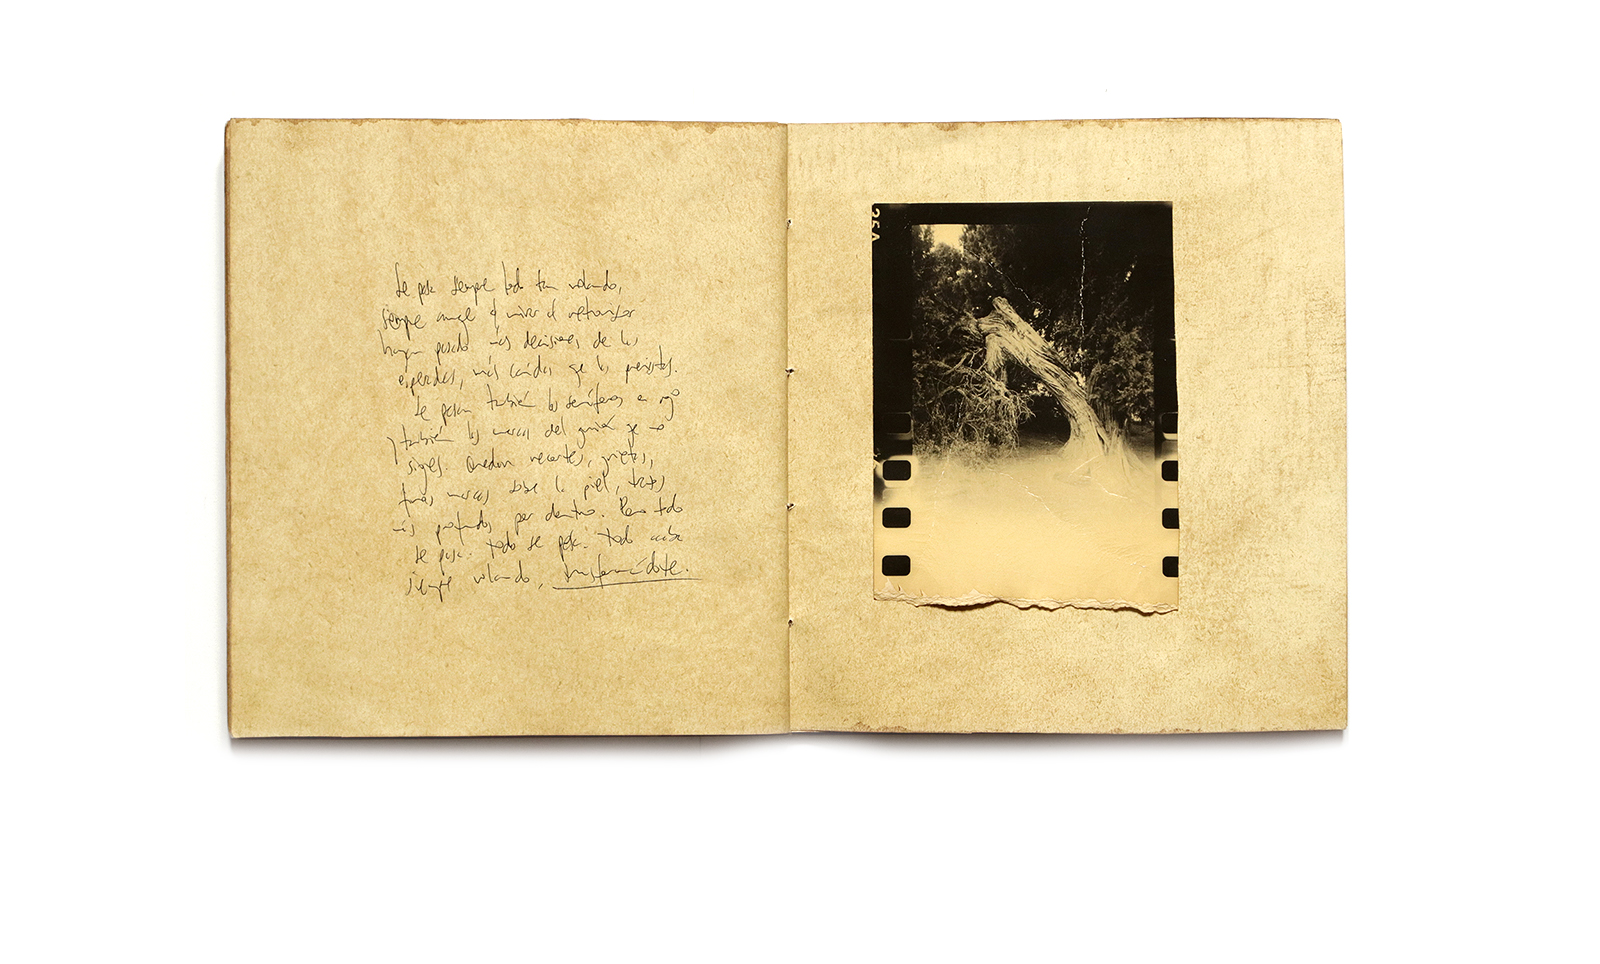 Se pasa siempre todo tan volando,
siempre aunque al mirar el retrovisor
hayan pasado más decisiones de las
esperadas, más caídas que las previstas.
Se pasan también los semáforos en rojo
y también las marcas del guión que no
sigues. Quedan recortes, grietas,
finas marcas sobre la piel, trazos
más profundos por dentro. Pero todo
se pasa. Todo se pasa. Todo acaba
siempre volando, transformándote.
25A